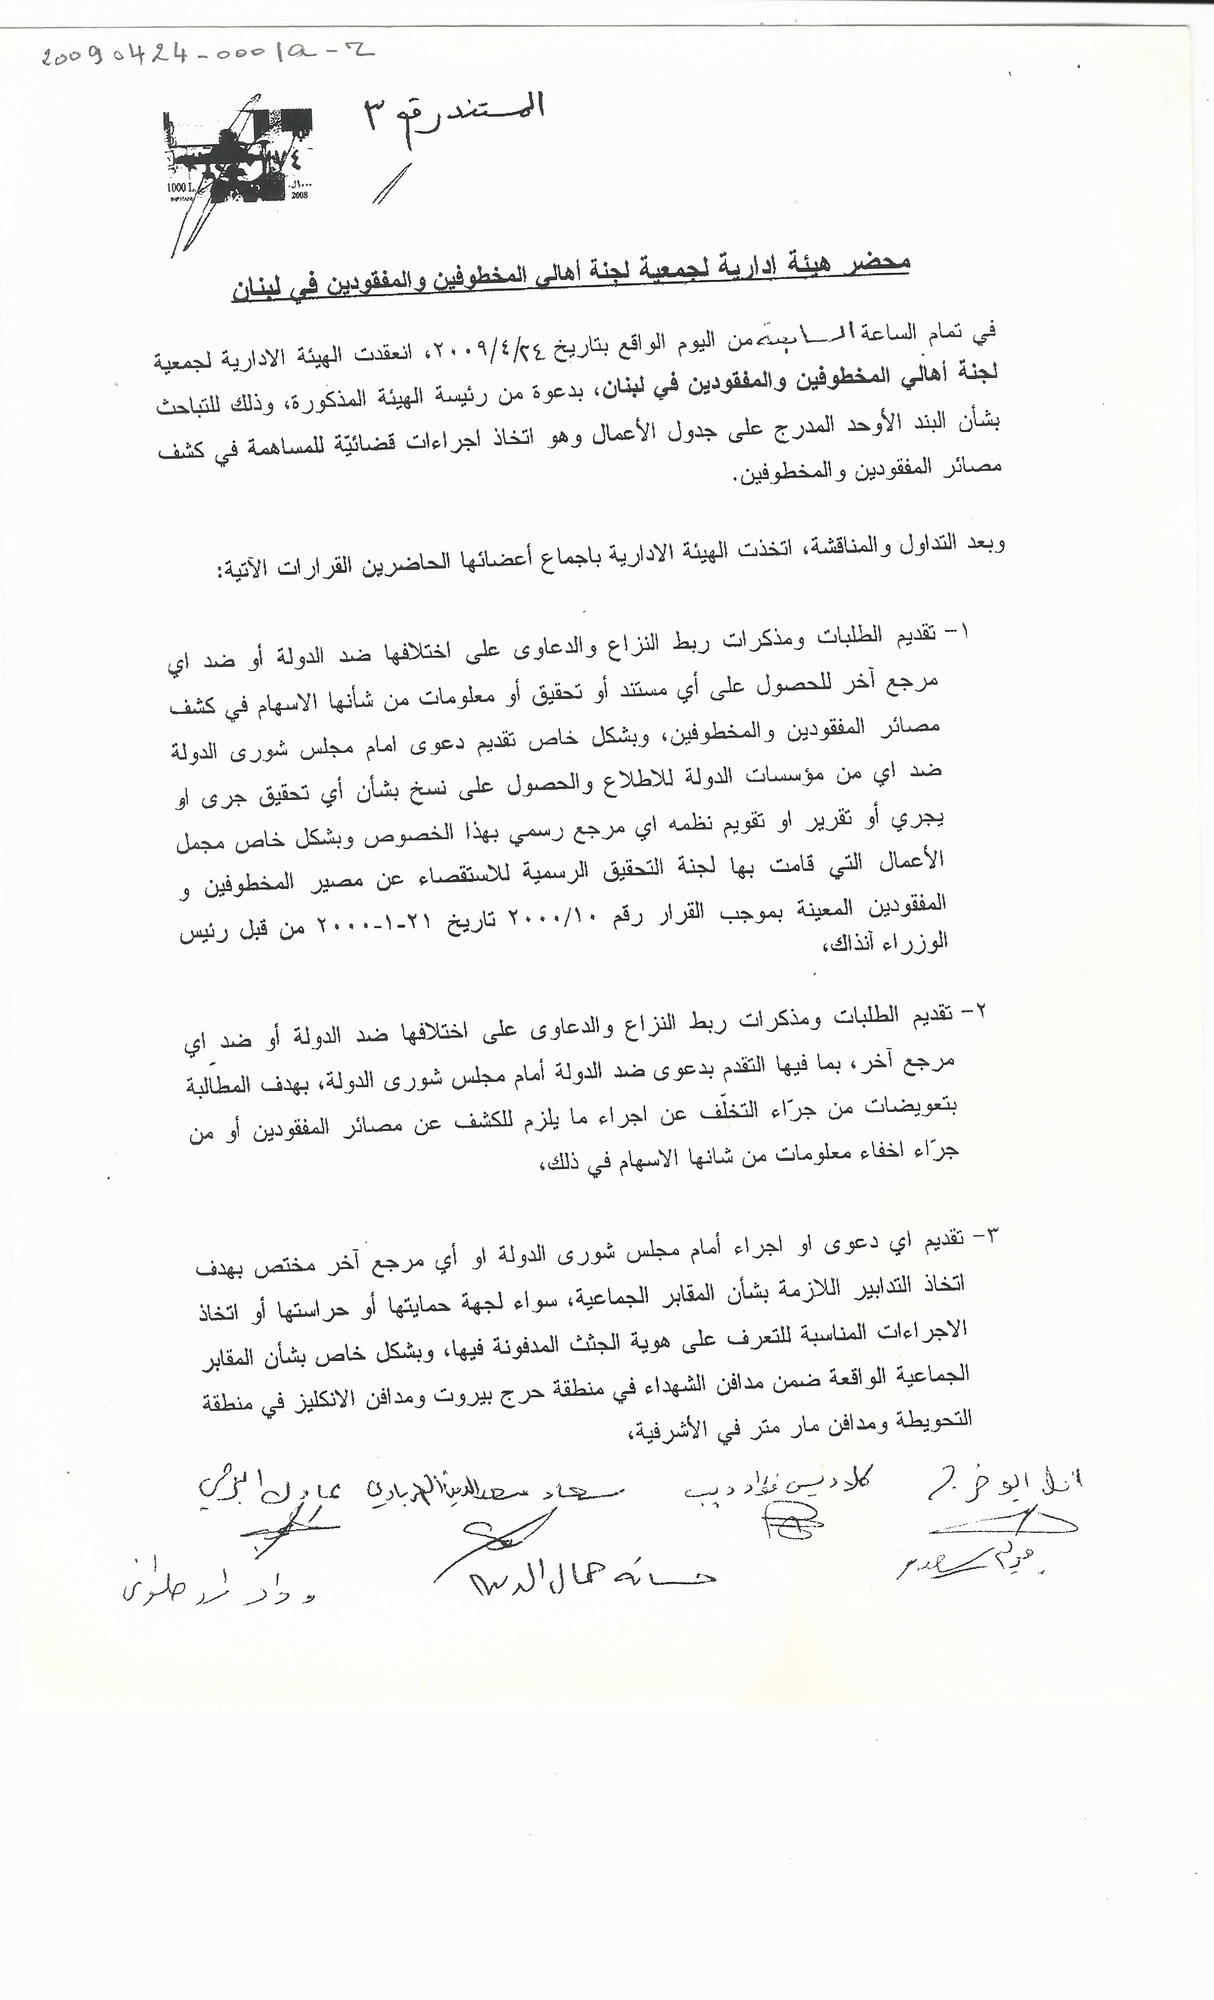 20090424-0001a-2
المستند رقم ٣
1000 L.
١٠٠٠ل.
2008
محضر هيئة ادارية لجمعية لجنة أهالي المخطوفين والمفقودين في لبنان
في تمام الساعة من اليوم الواقع بتاريخ ٢٠٠٩/٤/٢٤، انعقدت الهيئة الادارية لجمعية
لجنة أهالي المخطوفين والمفقودين في لبنان، بدعوة من رئيسة الهيئة المذكورة، وذلك للتباحث
بشأن البند الأوحد المدرج على جدول الأعمال وهو اتخاذ اجراءات قضائيّة للمساهمة في كشف
مصائر المفقودين والمخطوفين.
وبعد التداول والمناقشة، اتخذت الهيئة الادارية باجماع أعضائها الحاضرين القرارات الآتية:
١- تقديم الطلبات ومذكرات ربط النزاع والدعاوى على اختلافها ضد الدولة أو ضد اي
مرجع آخر للحصول على أي مستند أو تحقيق أو معلومات من شأنها الاسهام في كشف
مصائر المفقودين والمخطوفين، وبشكل خاص تقديم دعوى امام مجلس شورى الدولة
ضد اي من مؤسسات الدولة للاطلاع والحصول على نسخ بشأن أي تحقيق جرى او
يجري أو تقرير او تقويم نظمه اي مرجع رسمي بهذا الخصوص وبشكل خاص مجمل
الأعمال التي قامت بها لجنة التحقيق الرسمية للاستقصاء عن مصير المخطوفين و
المفقودين المعينة بموجب القرار رقم ٢٠٠٠/١٠ تاريخ ٢١-١-٢٠٠٠ من قبل رئيس
الوزراء آنذاك،
٢- تقديم الطلبات ومذكرات ربط النزاع والدعاوى على اختلافها ضد الدولة أو ضد اي
مرجع آخر، بما فيها التقدم بدعوى ضد الدولة أمام مجلس شورى الدولة، بهدف المطالبة
بتعويضات من جرّاء التخلّف عن اجراء ما يلزم للكشف عن مصائر المفقودين أو من
جرّاء اخفاء معلومات من شانها الاسهام في ذلك،
٣- تقديم اي دعوى او اجراء أمام مجلس شورى الدولة او أي مرجع آخر مختص بهدف
اتخاذ التدابير اللازمة بشأن المقابر الجماعية، سواء لجهة حمايتها أو حراستها أو اتخاذ
الاجراءات المناسبة للتعرف على هوية الجثث المدفونة فيها، وبشكل خاص بشأن المقابر
الجماعية الواقعة ضمن مدافن الشهداء في منطقة حرج بيروت ومدافن الانكليز في منطقة
التحويطة ومدافن مار متر في الأشرفية،
كلاديس فؤاد ديب سعاد سعد الدين
حسانه جمال الدين وداد حلواني